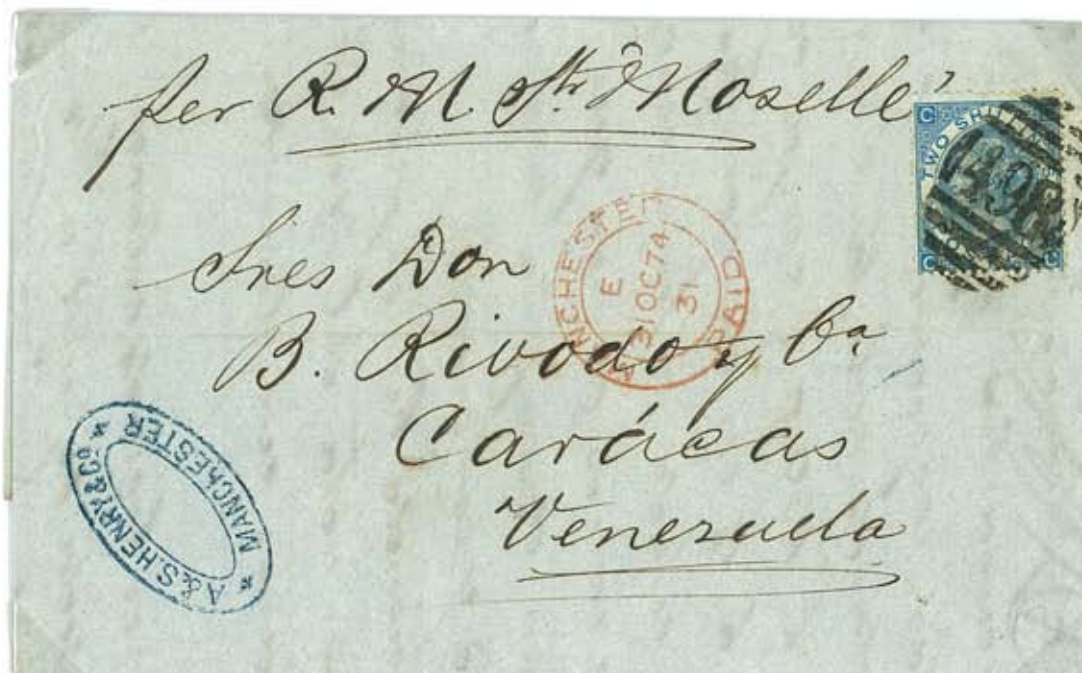 per R. M. Str "Moselle"
C TWO SHILLINGS
498
C C
MANCHESTER PAID
E
31 OC 74
31
Sres Don
B. Rivodo y Ca
Carácas
Venezuela
A & S. HENRY & Co
MANCHESTER